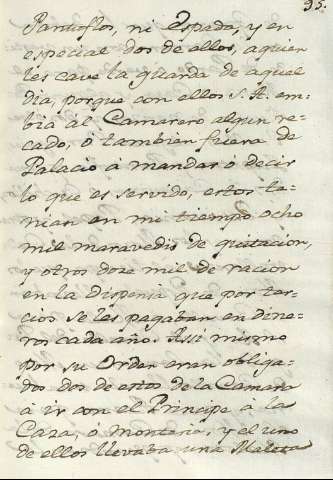 95.
Pantuflos, ni Espada, y en
especial dos de ellos, aquien
les cave la guarda de aquel
dia, porque con ellos S. A. em-
bia al Camarero algun re-
cado, ó tambien fuera de
Palacio á mandar ó decir
lo que es servido, estos te-
nian en mi tiempo ocho
mil maravedis de quitacion,
y otros doze mil de racion
en la Dispensa que por ter-
cios se les pagaban en dine-
ros cada año. Assi mismo
por su Orden eran obliga-
dos dos de estos de la Camara
á ir con el Principe á la
Caza, ó monteria, y el uno
de ellos llevaba una Maleta